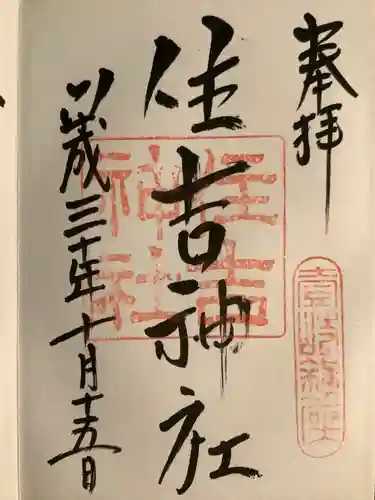 奉拝
住吉神社
住吉神社
平成三十年十月十五日